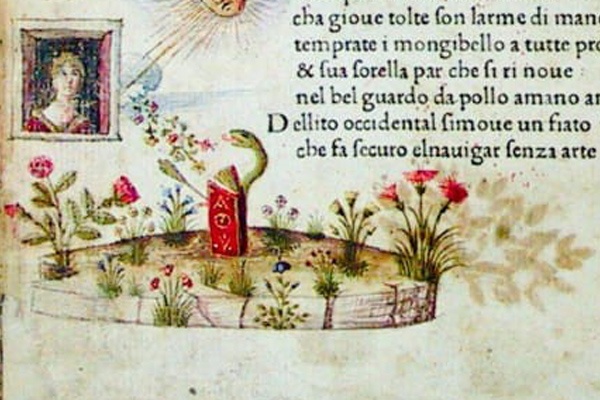 cha gioue tolte ſon larme di man
temprate i mongibello a tutte pro
& ſua ſorella par che ſi ri noue
nel bel guardo da pollo amano a
D ellito occidental ſimoue un fiato
che fa ſecuro elnauigar ſenza arte